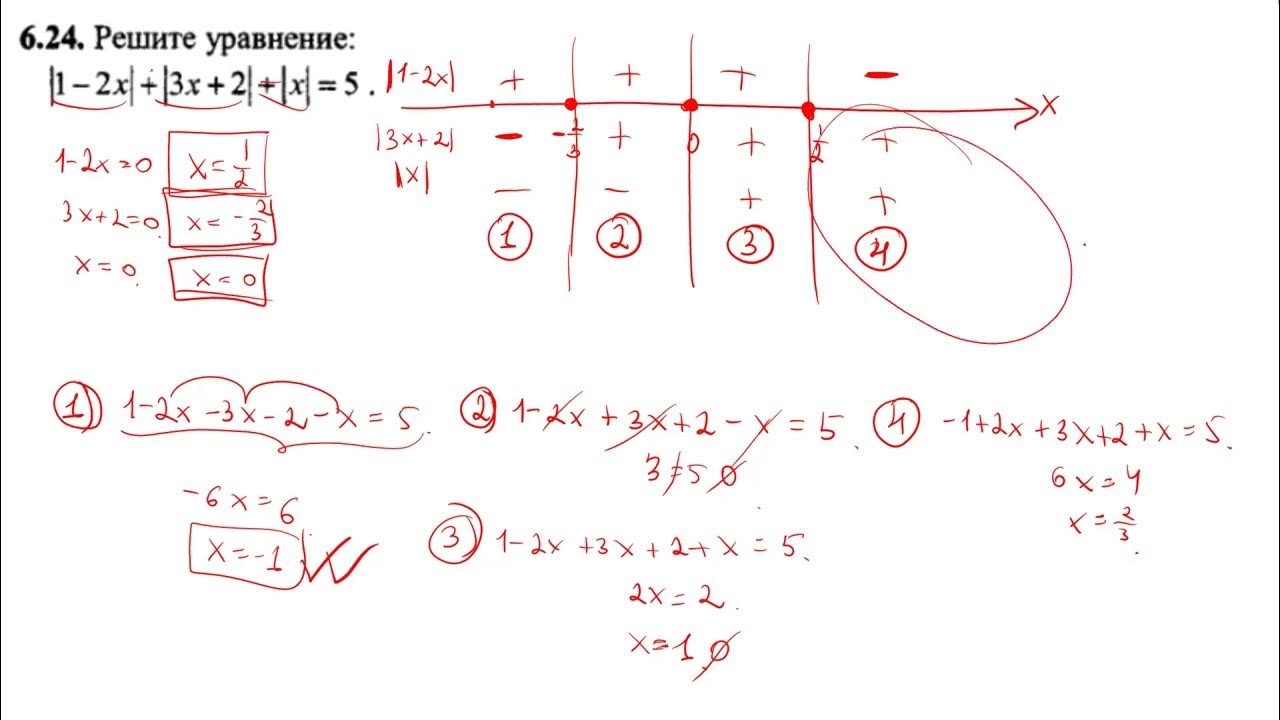 6.24. Решите уравнение:
|1 − 2x| + |3x + 2| + |x| = 5 .
1-2x=0 x = 1/2
3x+2=0 x = -2/3
x = 0 x = 0
|1-2x| + + + -
x
|3x+2| - -2/3 + 0 + 1/2 +
|x| - - + +
1 2 3 4
1 1-2x-3x-2-x = 5
-6x = 6
x = -1
2 1-2x+3x+2-x = 5
3≠5 ∅
3 1-2x+3x+2+x = 5
2x = 2
x = 1 ∅
4 -1+2x+3x+2+x = 5
6x = 4
x = 2/3